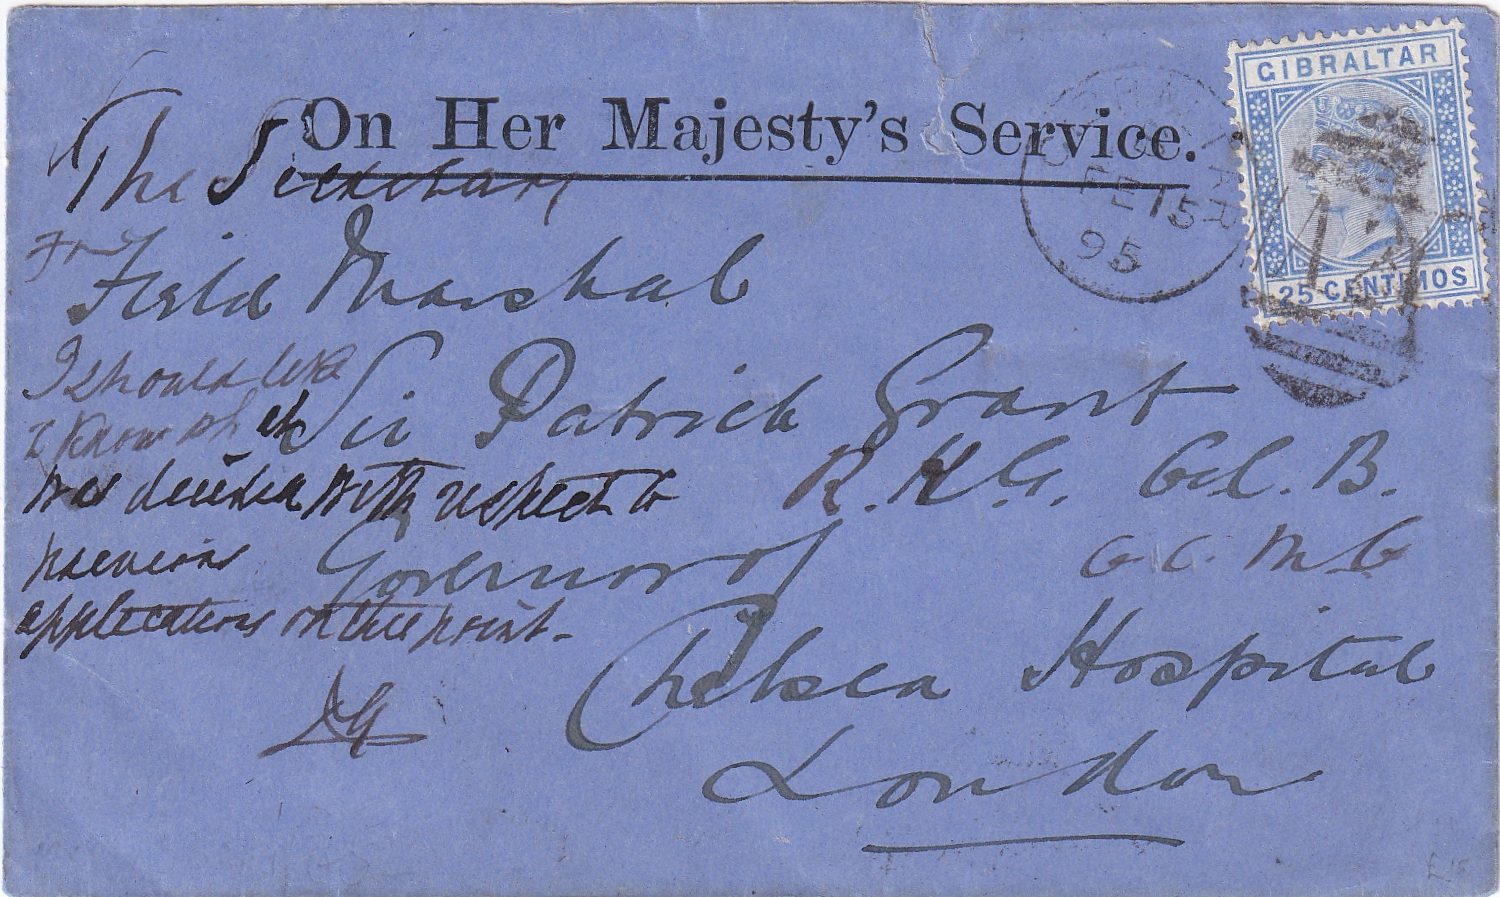 On Her Majesty's Service.
GIBRALTAR
25 CENTIMOS
FE 15
95
The Secretary
Field Marshal
Sir Patrick Grant
G.C.B.
G.C.M.G
Governor of
Chelsea Hospital
London
I should like
to know what
was decided with respect to
previous
applications on this point-
£15